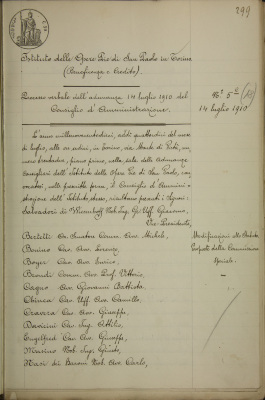 299
Istituto delle Opere Pie di San Paolo in Torino
(Beneficenza e Credito).
Processo verbale dell'adunanza 14 luglio 1910 del
Consiglio d'Amministrazione.
N.° 5°
14 luglio 1910
L'anno millenovecentodieci, addì quattordici del mese
di luglio, alle ore sedici, in Torino, via Monte di Pietà, nu-
mero trentadue, piano primo, nella sala delle adunanze
consigliari dell'Istituto delle Opere Pie di San Paolo, con-
vocatosi, nelle prescritte forme, il Consiglio d'Ammini-
strazione dell'Istituto stesso, risultano presenti i Signori:
Salvadori di Wiesenhoff Nob. Ing. Gr. Uff. Giacomo,
Vice-Presidente,
Bertetti Comm. Avv. Michele,
Bonino Cav. Avv. Lorenzo,
Boyer Cav. Avv.
Brondi Comm. Avv. Prof. Vittorio,
Cagno Avv. Giovanni Battista,
Chiesa Cav. Uff. Avv. Camillo,
Craveri Cav. Avv. Giuseppe,
Davicini Cav. Ing. Attilio,
Engelfred Cav. Avv. Giuseppe,
Masino Nob. Ing. Giusto,
Nasi di Baroni Nob. Avv. Carlo,
Proposte della Commissione
Speciale.